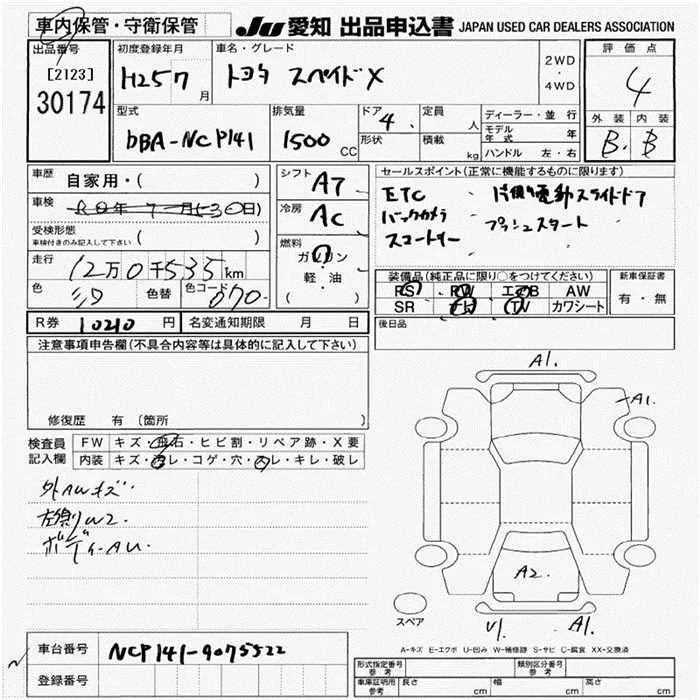 車内保管・守衛保管
JU 愛知 出品申込書 JAPAN USED CAR DEALERS ASSOCIATION
出品番号
[2123]
30174
初度登録年月
H25 7 月
車名・グレード
トヨタ スペイドX
2WD
・
4WD
評価点
4
外装 内装
B. B
型式
DBA-NCP141
排気量
1500 CC
ドア
4
形状
定員
人
積載
kg
ディーラー・並行
モデル年式 年
ハンドル 左・右
車歴 自家用・( )
車検
受検形態
車検付きのみ記入して下さい ( )
走行 12万0千535km
色 シロ 色替 色コード 070
シフト AT
冷房 AC
燃料
ガソリン
軽・油
( )
セールスポイント(正常に機能するものに限ります)
ETC 片側電動スライドドア
バックカメラ プッシュスタート
装備品(純正品に限り○をつけてください)
RS PW エアB AW
SR ナビ TV カワシート
新車保証書
有・無
後日品
R券 10210 円
名変通知期限 月 日
注意事項申告欄(不具合内容等は具体的に記入して下さい)
修復歴 有 〔箇所 〕
検査員記入欄
FW キズ・飛石・ヒビ割・リペア跡・X要
内装 キズ・汚レ・コゲ・穴・スレ・キレ・破レ
外AWキズ
左側W2.
ボディーAU.
A1.
A1.
A2.
U1
A1.
スペア
A-キズ E-エクボ U-凹み W-補修跡 S-サビ C-腐食 XX-交換済
車台番号 NCP141-9075522
登録番号
形式指定番号 参考
類別区分番号 参考
車庫証明用 参考
長さ cm 幅 cm 高さ cm